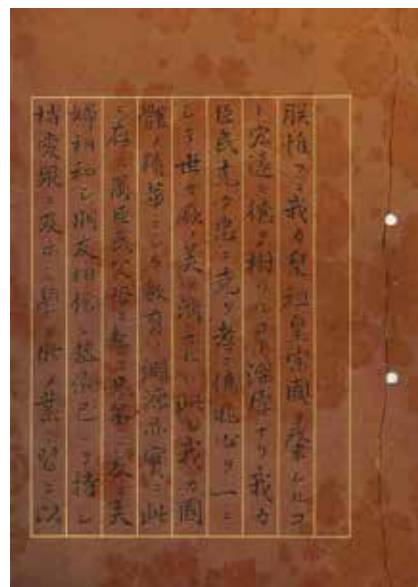 朕惟フニ我カ皇祖皇宗國ヲ肇ムルコ
ト宏遠ニ徳ヲ樹ツルコト深厚ナリ我カ
臣民克ク忠ニ克ク孝ニ億兆心ヲ一ニ
シテ世々厥ノ美ヲ濟セルハ此レ我カ國
體ノ精華ニシテ教育ノ淵源亦實ニ此
ニ存ス爾臣民父母ニ孝ニ兄弟ニ友ニ夫
婦相和シ朋友相信シ恭儉己レヲ持シ
博愛衆ニ及ホシ學ヲ修メ業ヲ習ヒ以